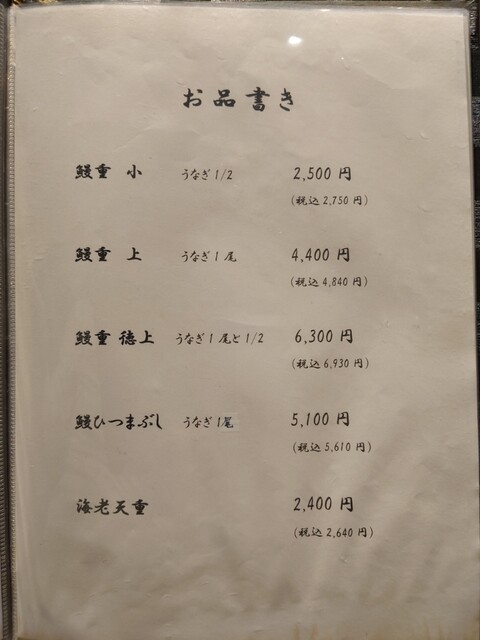 お品書き
鰻重 小 うなぎ 1/2 2,500 円
(税込 2,750 円)
鰻重 上 うなぎ 1 尾 4,400 円
(税込 4,840 円)
鰻重 徳上 うなぎ 1 尾と 1/2 6,300 円
(税込 6,930 円)
鰻ひつまぶし うなぎ 1尾 5,100 円
(税込 5,610 円)
海老天重 2,400 円
(税込 2,640 円)